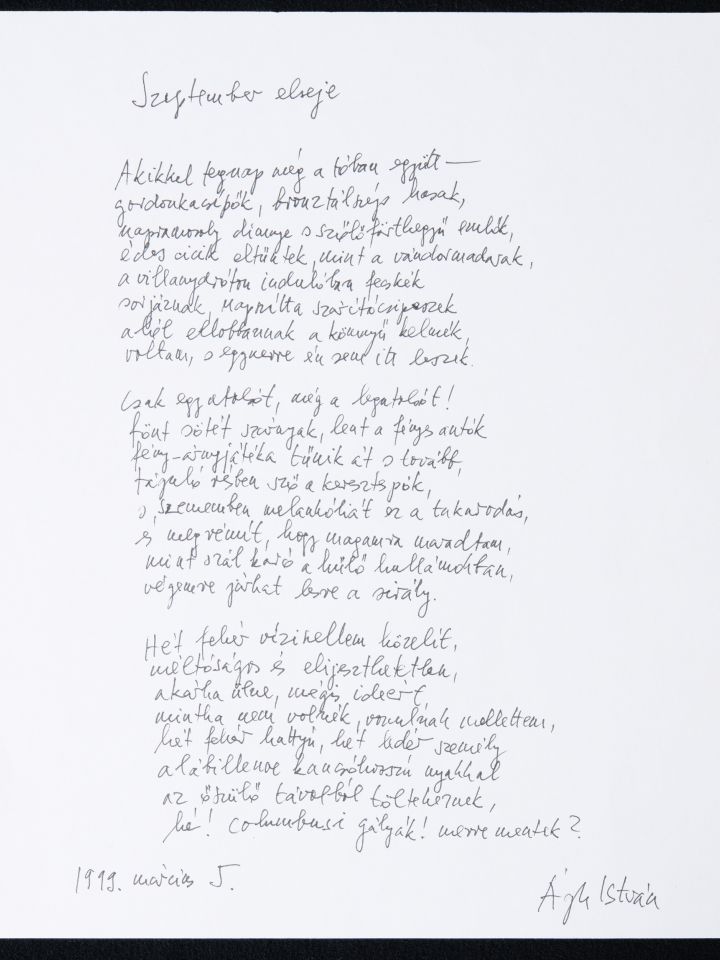 Szeptember elseje
Akikkel tegnap még a tóban együtt —
gordonkacsípők, bronztálszép hasak,
napramosoly dinnye s szőlőfürthegyű emlők,
édes cicik eltűntek, mint a vándormadarak,
a villanydróton indulóban fecskék
sorjáznak, maguk szárítócsipeszek
alól ellobbannak a könnyű kelmék,
voltam, s egyszerre én sem itt leszek.
Csak egy utolsót, még a legutolsót!
fönt sötét szárnyak, lent a fényes autók
fény-árnyjátéka tűnik át s tovább,
táguló résben sző a keresztspók,
s szememben melankóliát ez a takarodás,
és megrémít, hogy magamra maradtam,
mint szál karó a hűlő hullámokban,
végemre járhat lesre a sirály.
Hét fehér vízi kellem közelít,
méltóságos és elijeszthetetlen,
akárha ülne, mégis ideért
mintha nem volnék, vonulnak mellettem,
hét fehér hattyú, hét ledér személy
alábillenve kancsóhosszú nyakkal
az őszülő távolból töltekeznek,
hé! columbusi gályák! merre mentek?
1999. március 5.
Ágh István